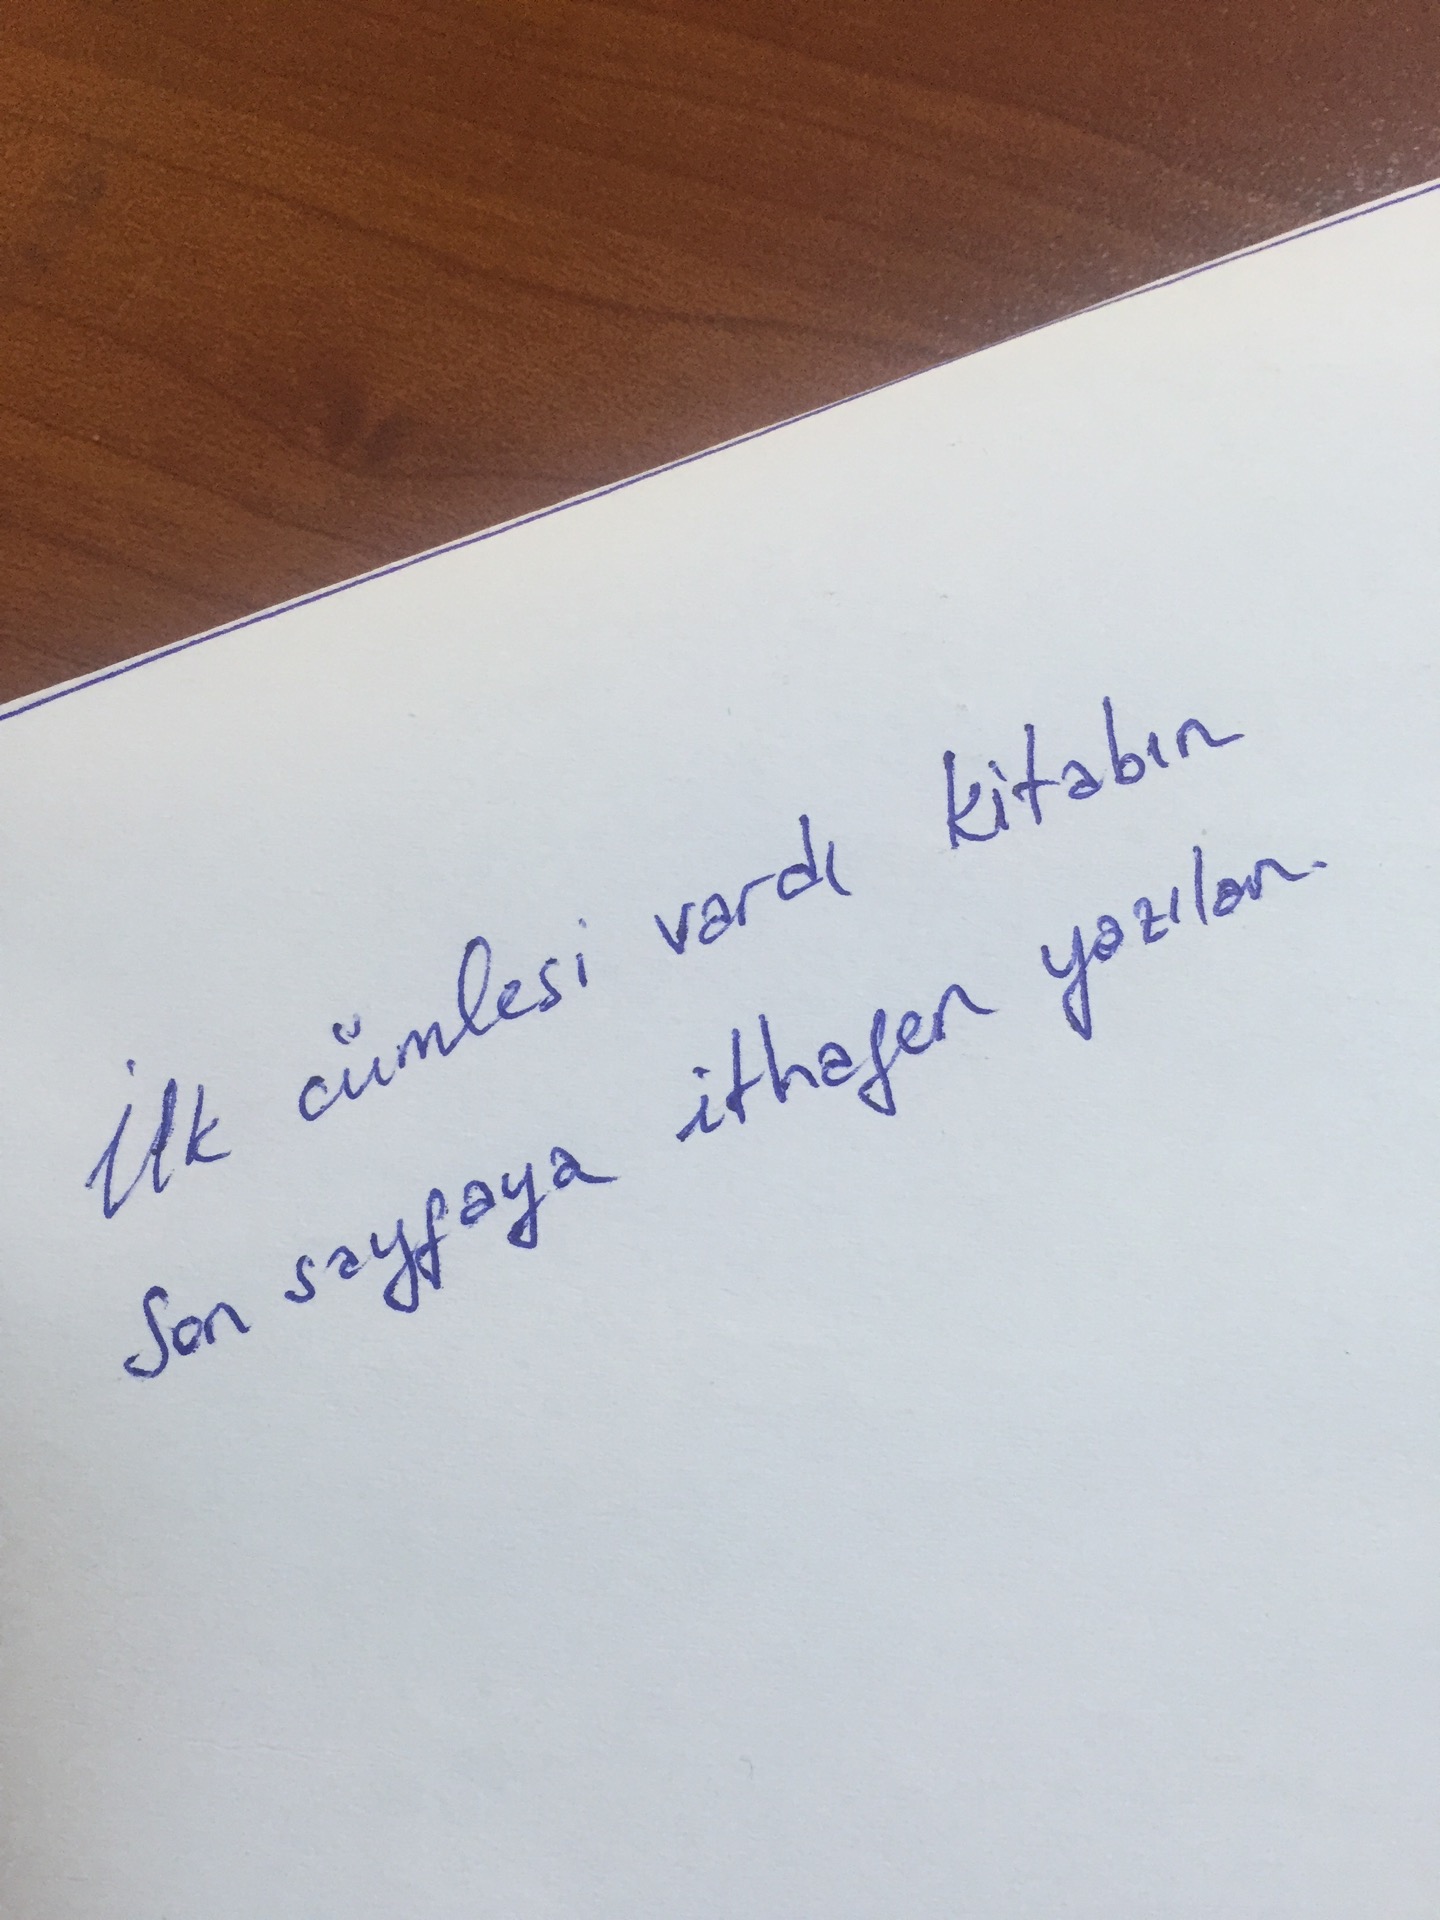 İlk cümlesi vardı kitabın
Son sayfaya ithafen yazılan.